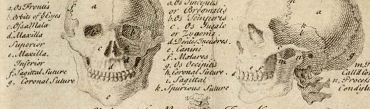 a. Os Frontis
b. Orbit of Eyes
c. Os Mala
d. Maxilla
Superior
e. Maxilla
Inferior
f. Sagittal Suture
g. Coronal Suture
a. Os Sincipitis
or Bregmatis
b. Os Temporis
c. Os Jugale
or Zugoma
d. Dentes Incisores
e. Canini
f. Molares
g. Os Occipitis
h. Coronal Suture
i. Sagittal
k. Spurious Suture
n. Process
Condyl